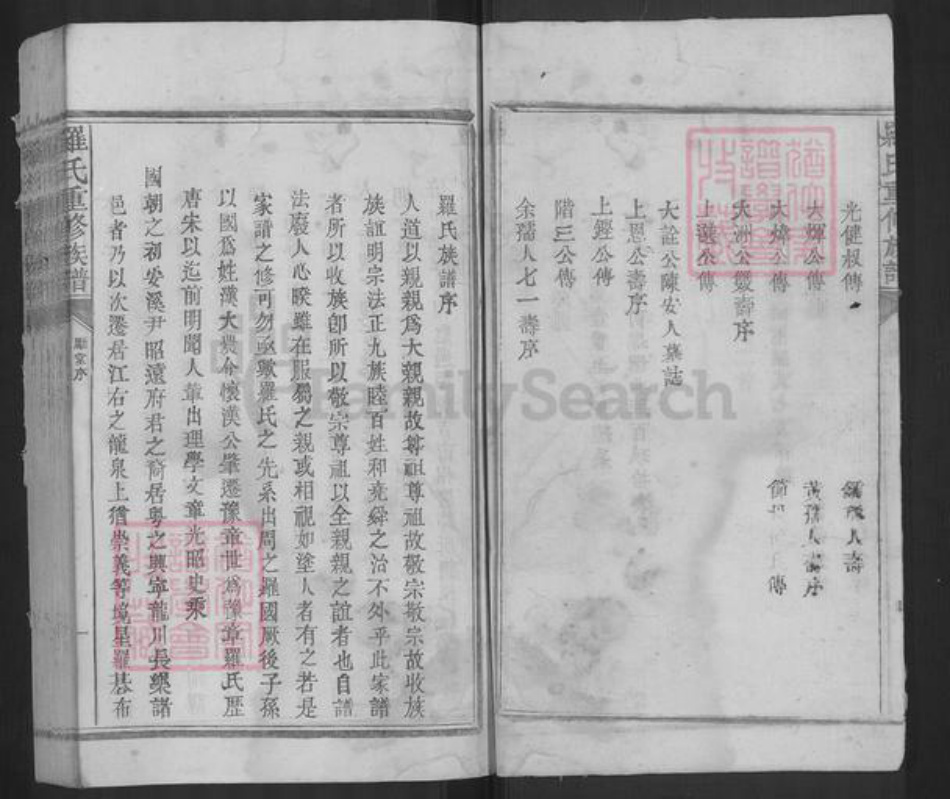 羅氏重修族譜
光健叔傳
大煇公傳
大煒公傳
大洲公雙壽序
上選公傳
大詮公陳安人墓誌
上恩公壽序
上鏗公傳
階三公傳
余孺人七一壽序
人壽
黃孺人壽序
傳
羅氏族譜序
人道以親親爲大親親故尊祖尊祖故敬宗敬宗故收族
族誼明宗法正九族睦百姓和堯舜之治不外乎此家譜
者所以收族卽所以敬宗尊祖以全親親之誼者也自譜
法廢人心睽雖在服屬之親或相視如塗人者有之若是
家譜之修可勿亟歟羅氏之先系出周之羅國厥後子孫
以國爲姓漢大農令懷漢公肇遷豫章世爲豫章羅氏歷
唐宋以迄前明聞人輩出理學文章光昭史乘
國朝之初安溪尹昭遠府君之裔居粤之興寧龍川長樂諸
邑者乃以次遷居江右之龍泉上猶崇義等境星羅碁布
羅氏重修族譜
序
一
FamilySearch